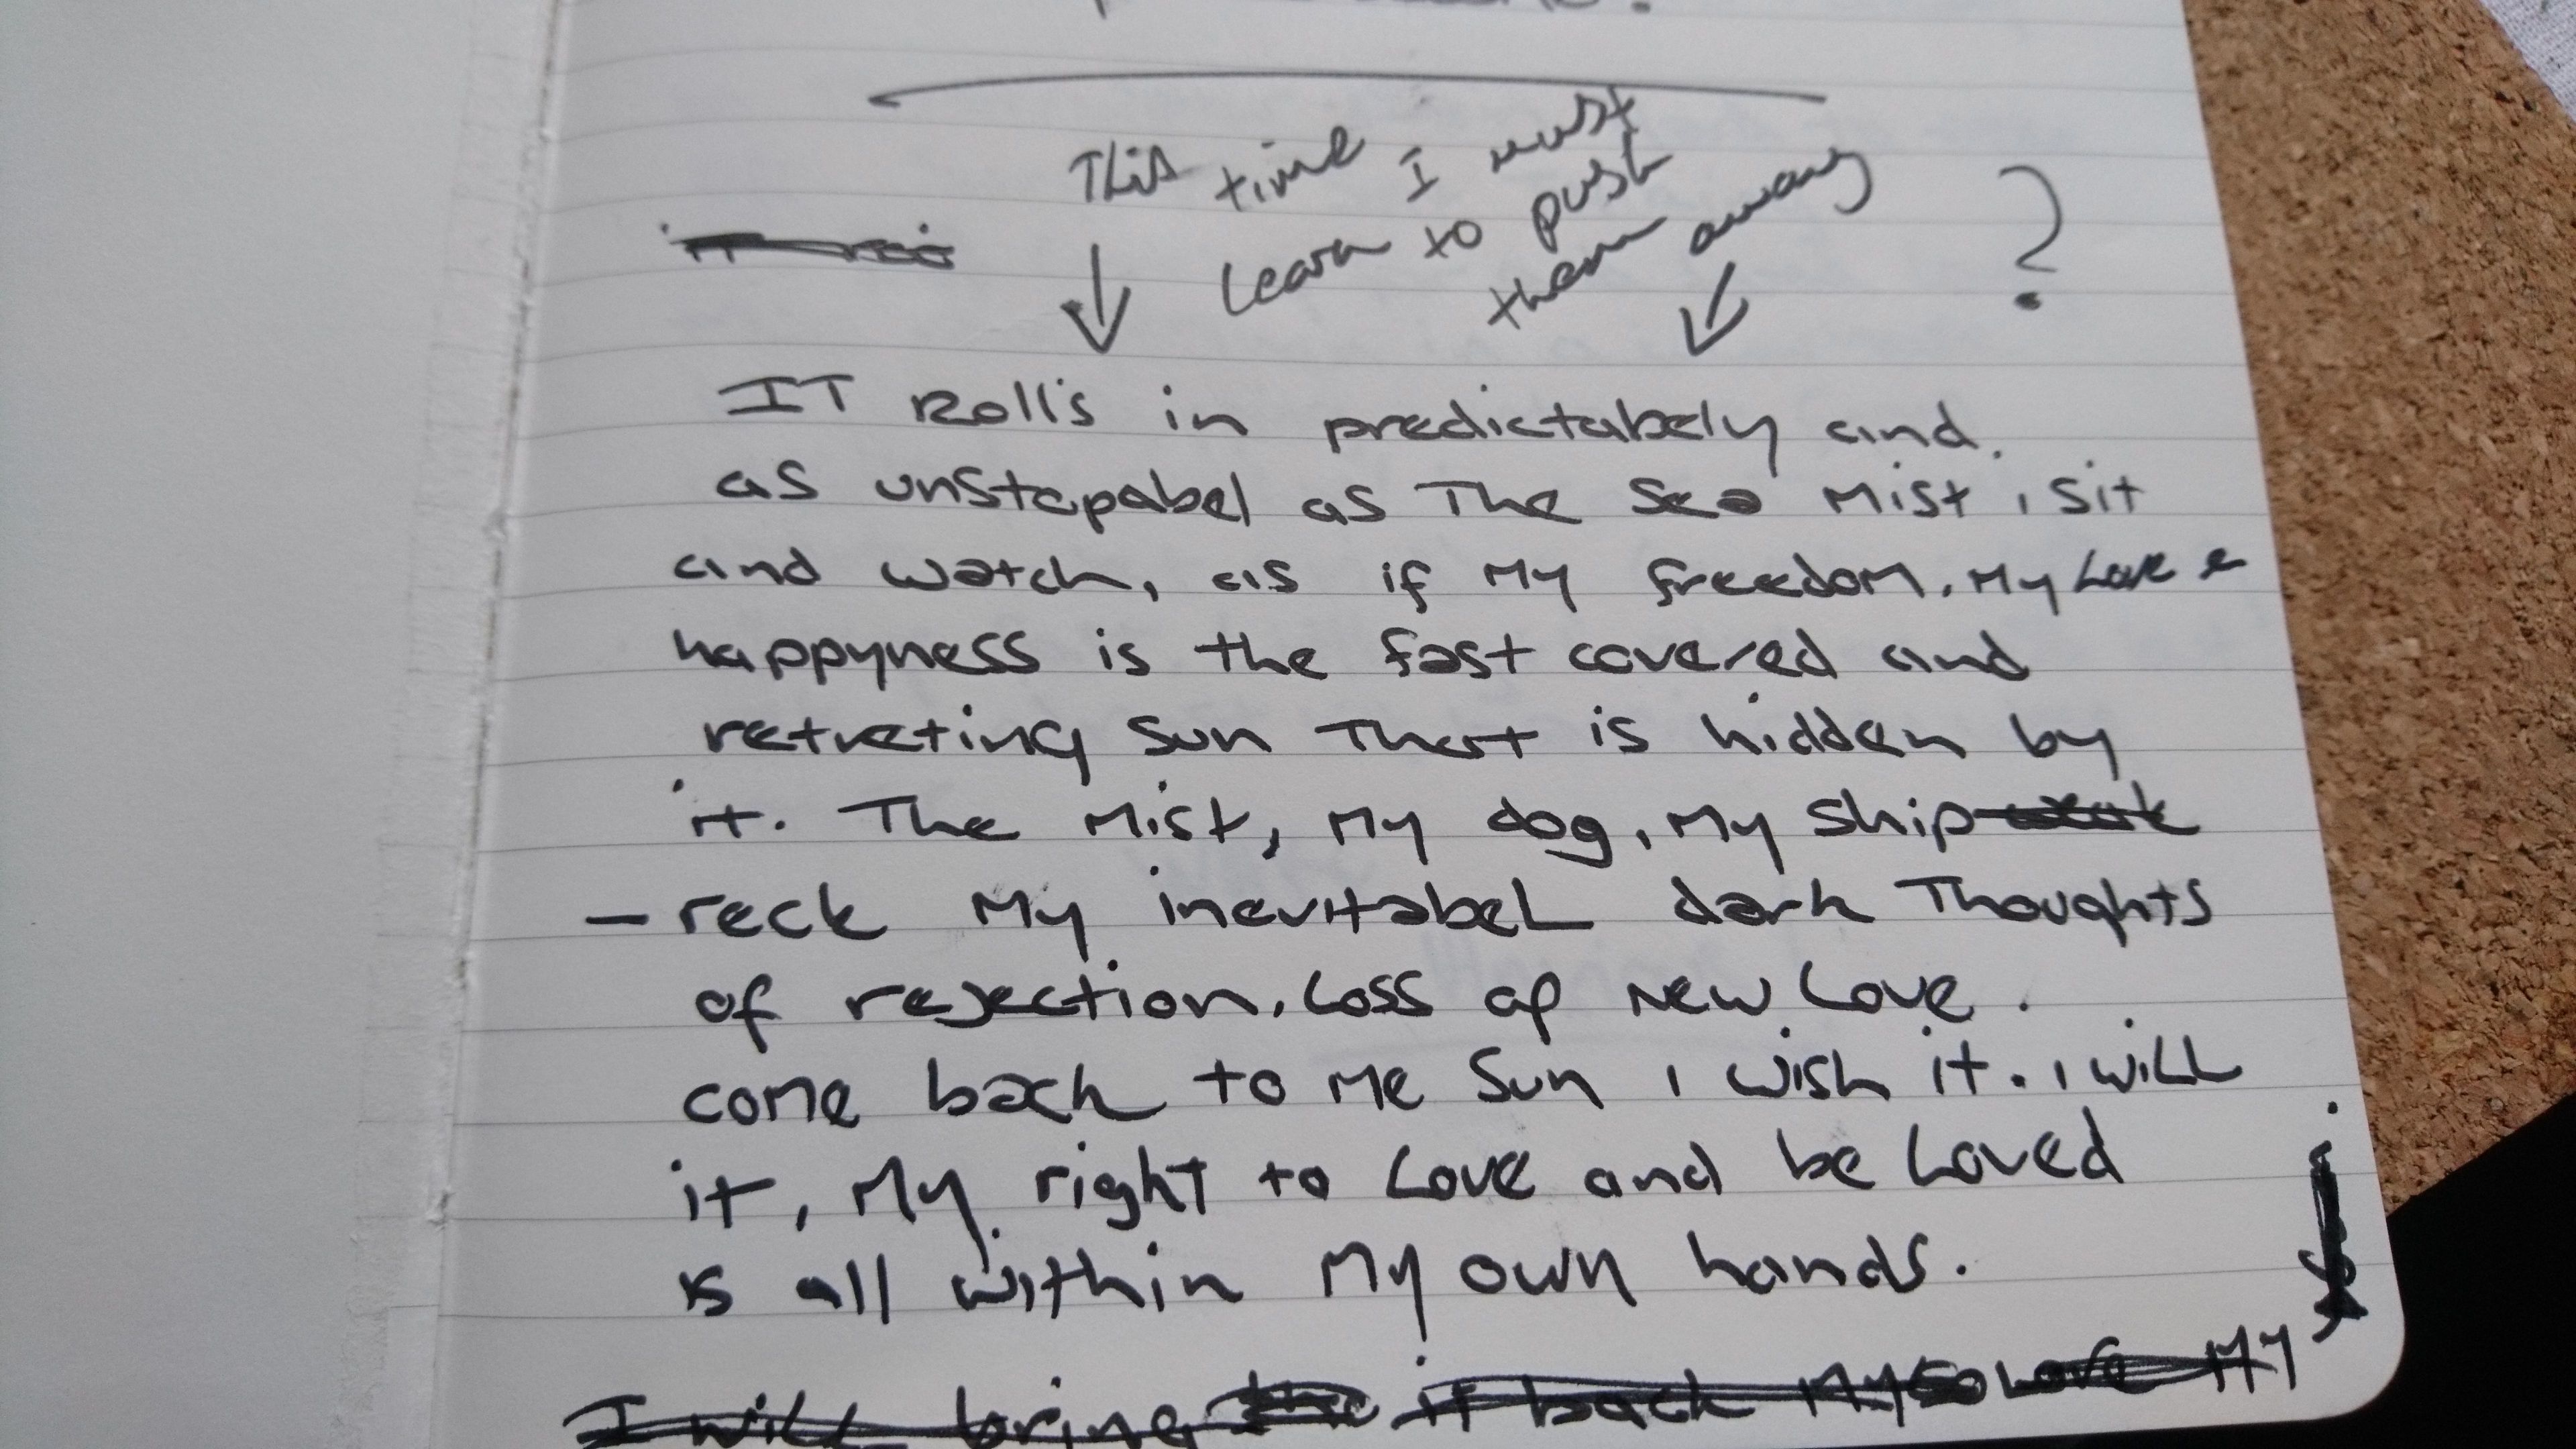 This time I must
learn to push
them away
?
IT Roll's in predictabely and
as unstopabel as The Sea Mist, i sit
and watch, as if My freedom. My Love &
happyness is the fast covered and
retreting sun That is hidden by
it. The Mist, My dog, My ship
- reck My inevitabel dark Thoughts
of rejection. Loss of New Love.
come back to Me Sun i wish it. i will
it, My right to Love and be Loved
is all within My own hands.
I will bring the it back My so Love My